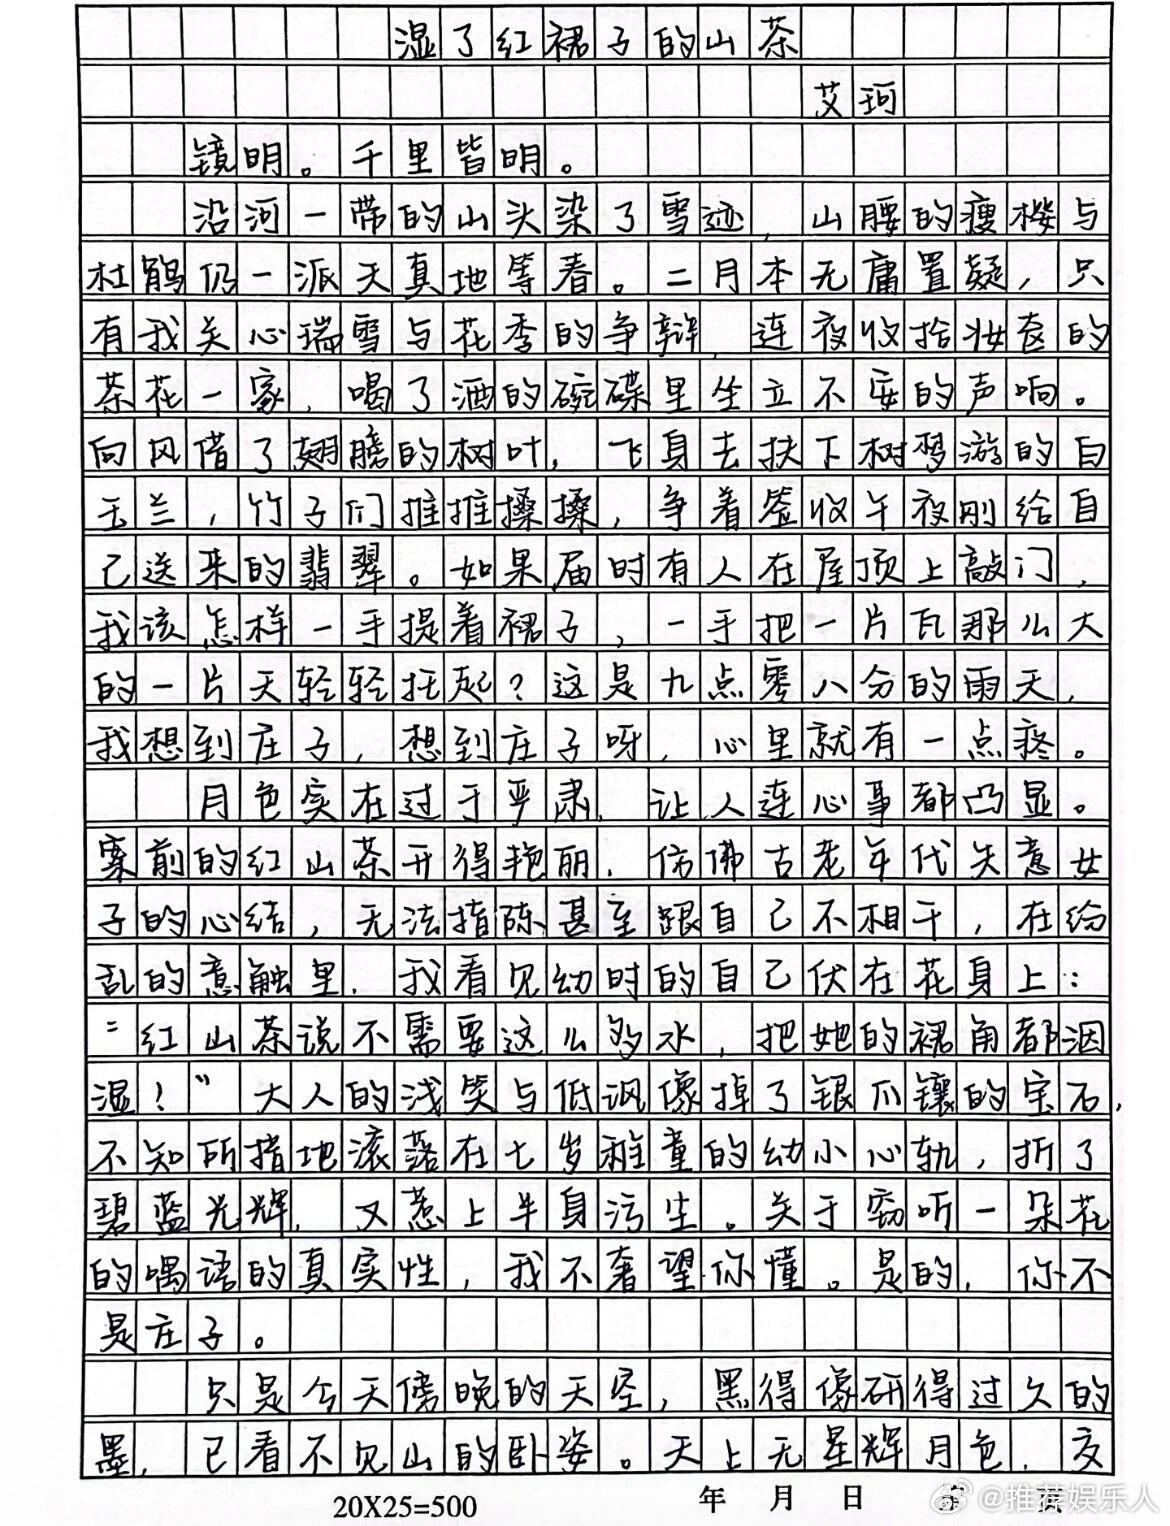 湿了红裙子的山茶
艾珂
镜明。千里皆明。
沿河一带的山头染了雪迹，山腰的瘦樱与
杜鹃仍一派天真地等春。二月本无庸置疑，只
有我关心瑞雪与花季的争辩，连夜收拾妆奁的
茶花一家，喝了酒的碗碟里坐立不安的声响。
向风借了翅膀的树叶，飞身去扶下树梦游的白
玉兰，竹子们推推搡搡，争着签收午夜刚给自
己送来的翡翠。如果届时有人在屋顶上敲门，
我该怎样一手提着裙子，一手把一片瓦那么大
的一片天轻轻托起？这是九点零八分的雨天，
我想到庄子，想到庄子呀，心里就有一点疼。
月色实在过于严肃，让人连心事都凸显。
案前的红山茶开得艳丽，仿佛古老年代失意女
子的心结，无法指陈甚至跟自己不相干，在纷
乱的意触里，我看见幼时的自己伏在花身上：
“红山茶说不需要这么多水，把她的裙角都洇
湿！”大人的浅笑与低讽像掉了银爪镶的宝石，
不知所措地滚落在七岁稚童的幼小心轨，折了
碧蓝光辉，又惹上半身污尘。关于窃听一朵花
的喁语的真实性，我不奢望你懂。是的，你不
是庄子。
只是今天傍晚的天空，黑得像研得过久的
墨，已看不见山的卧姿。天上无星辉月色，交
20X25=500 年 月 日 第 页
@推荐娱乐人